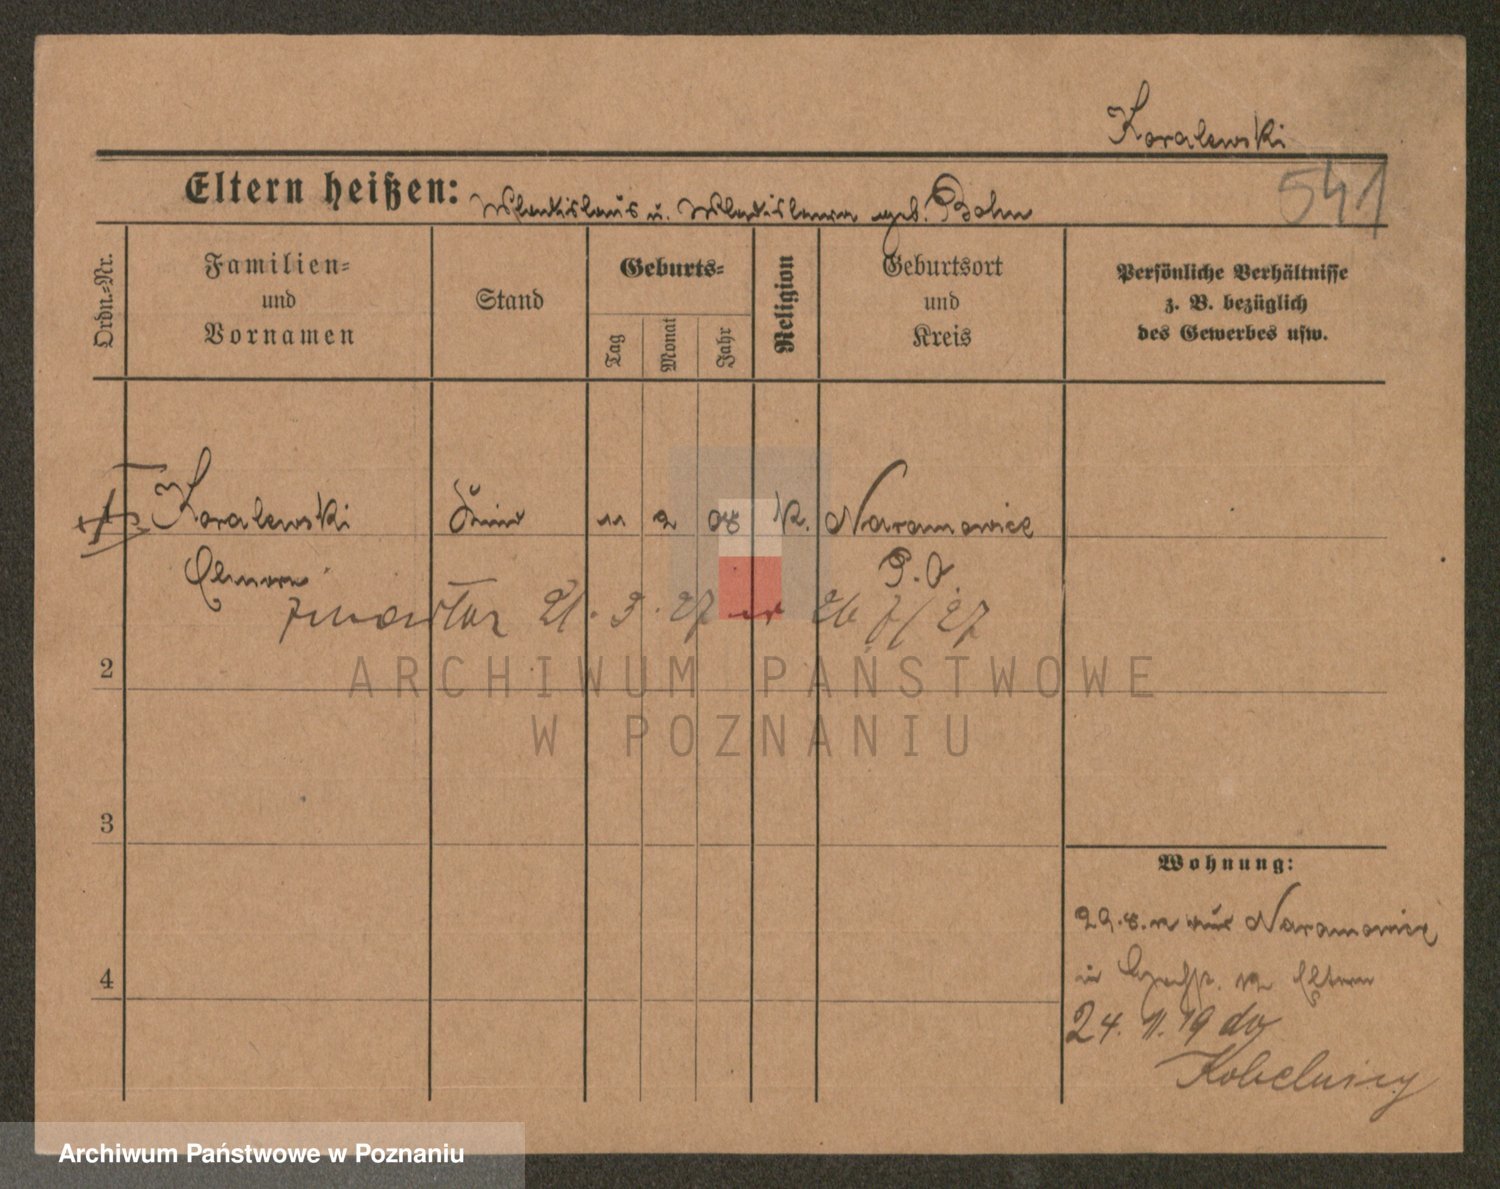 Koralewski
541
Eltern heißen: Wladislaus u. Wladislawa geb. Bohn
Ordn.-Nr.
Familien-
und
Vornamen
Stand
Geburts-
Tag
Monat
Jahr
Religion
Geburtsort
und
Kreis
Persönliche Verhältnisse
z. B. bezüglich
des Gewerbes usw.
1 Koralewski Kind 11 2 08 K. Naramowice
P. O.
zmarła 21. 3. 27 26/27
2
ARCHIWUM PAŃSTWOWE
W POZNANIU
3
Wohnung:
29.8. aus Naramowice
4
in Eltern
24. 11. 19 do
Kobelnicy
Archiwum Państwowe w Poznaniu